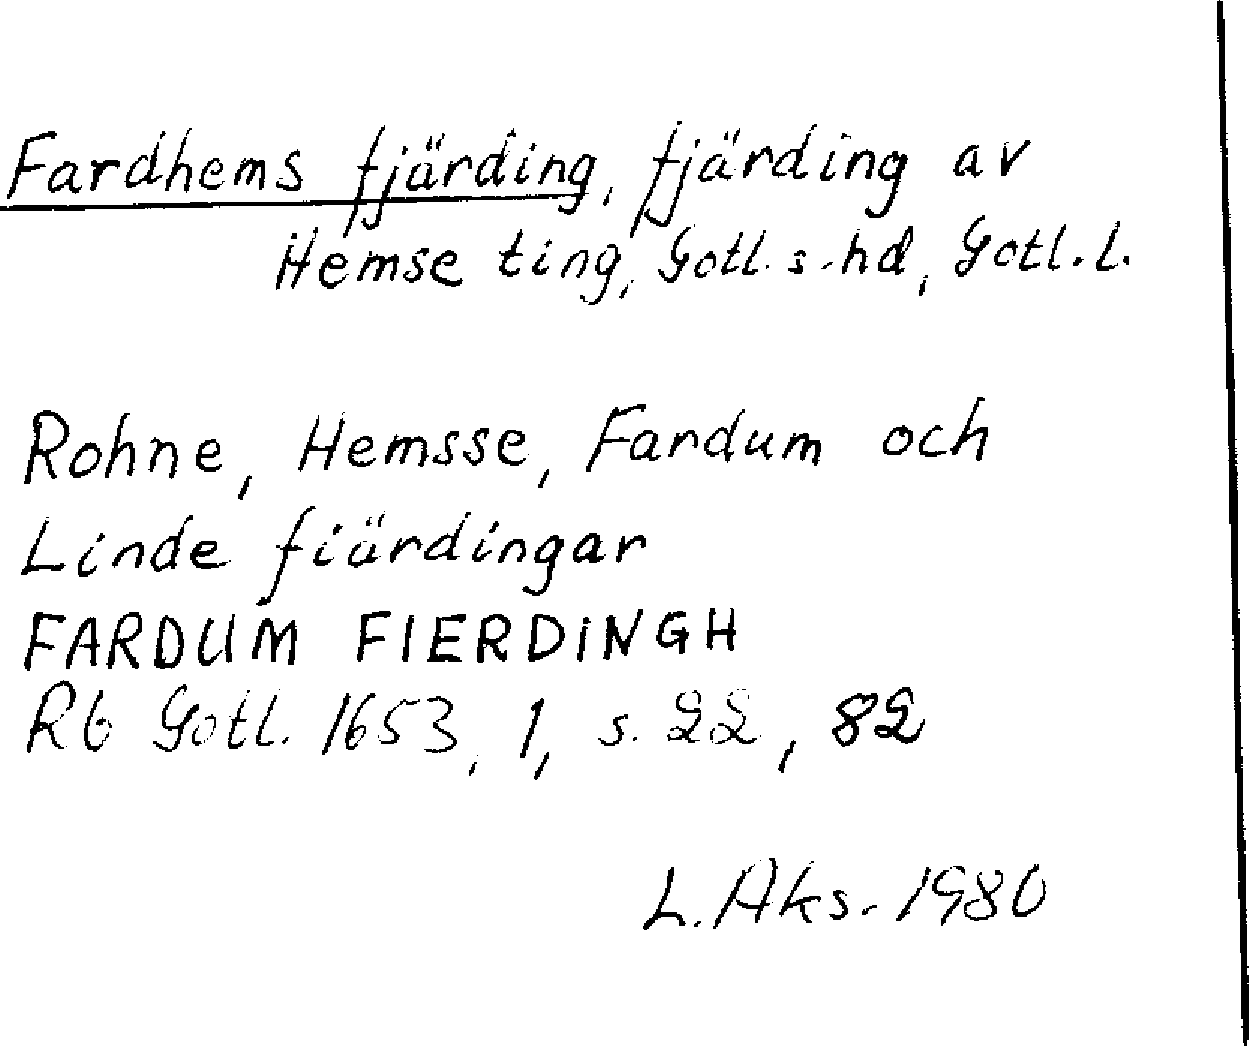 Fardhems fjärding, fjärding av
Hemse ting, Gotl. s. hd, Gotl. l.
Rohne, Hemsse, Fardum och
Linde fiärdingar
FARDUM FIERDINGH
Rb Gotl. 1653, 1, s. 22, 82
L. Aks. 1980